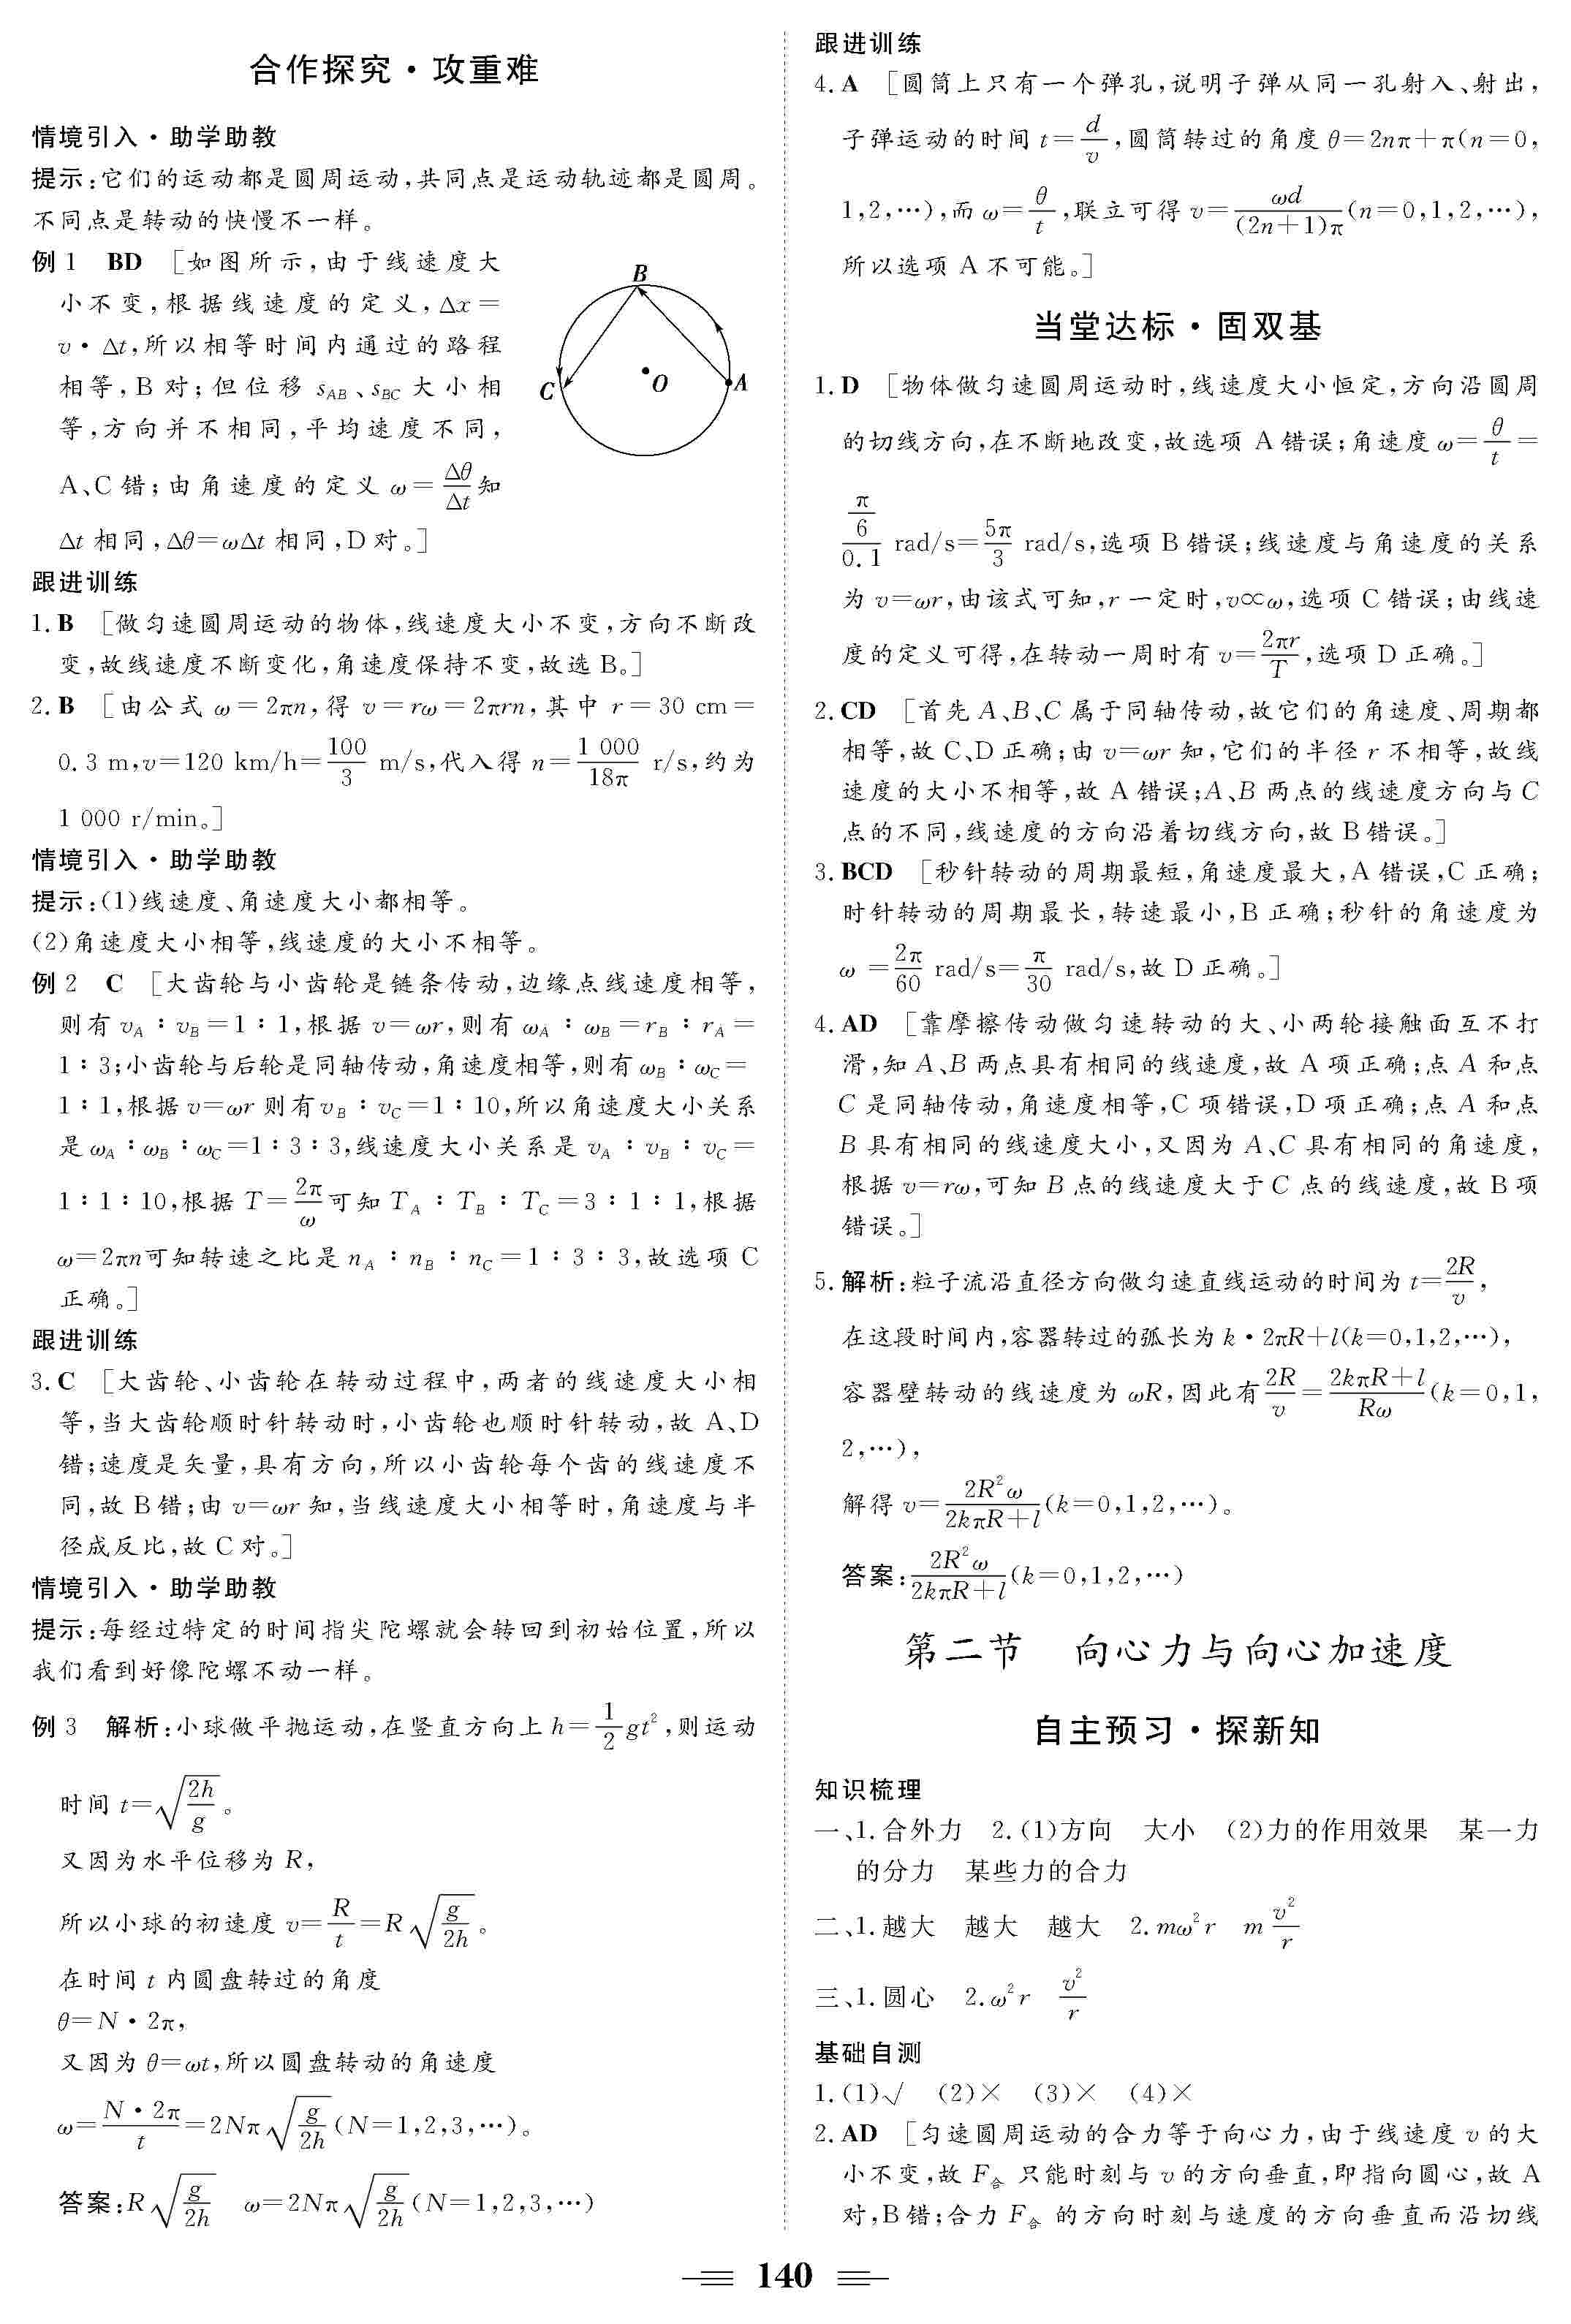 合作探究·攻重难
情境引入·助学助教
提示:它们的运动都是圆周运动,共同点是运动轨迹都是圆周。
不同点是转动的快慢不一样。
例1 BD [如图所示,由于线速度大
小不变,根据线速度的定义,Δx=
v·Δt,所以相等时间内通过的路程
相等,B对;但位移 s_AB、s_BC 大小相
等,方向并不相同,平均速度不同,
A、C错;由角速度的定义 ω=Δθ/Δt 知
Δt 相同,Δθ=ωΔt 相同,D对。]
B
C
O
A
跟进训练
1.B [做匀速圆周运动的物体,线速度大小不变,方向不断改
变,故线速度不断变化,角速度保持不变,故选B。]
2.B [由公式 ω=2πn,得 v=rω=2πrn,其中 r=30 cm=
0.3 m,v=120 km/h=100/3 m/s,代入得 n=1 000/18π r/s,约为
1 000 r/min。]
情境引入·助学助教
提示:(1)线速度、角速度大小都相等。
(2)角速度大小相等,线速度的大小不相等。
例2 C [大齿轮与小齿轮是链条传动,边缘点线速度相等,
则有 v_A∶v_B=1∶1,根据 v=ωr,则有 ω_A∶ω_B=r_B∶r_A=
1∶3;小齿轮与后轮是同轴传动,角速度相等,则有 ω_B∶ω_C=
1∶1,根据 v=ωr 则有 v_B∶v_C=1∶10,所以角速度大小关系
是 ω_A∶ω_B∶ω_C=1∶3∶3,线速度大小关系是 v_A∶v_B∶v_C=
1∶1∶10,根据 T=2π/ω 可知 T_A∶T_B∶T_C=3∶1∶1,根据
ω=2πn可知转速之比是 n_A∶n_B∶n_C=1∶3∶3,故选项C
正确。]
跟进训练
3.C [大齿轮、小齿轮在转动过程中,两者的线速度大小相
等,当大齿轮顺时针转动时,小齿轮也顺时针转动,故A、D
错;速度是矢量,具有方向,所以小齿轮每个齿的线速度不
同,故B错;由 v=ωr 知,当线速度大小相等时,角速度与半
径成反比,故C对。]
情境引入·助学助教
提示:每经过特定的时间指尖陀螺就会转回到初始位置,所以
我们看到好像陀螺不动一样。
例3 解析:小球做平抛运动,在竖直方向上 h=1/2 gt²,则运动
时间 t=√(2h/g)。
又因为水平位移为 R,
所以小球的初速度 v=R/t=R√(g/2h)。
在时间 t 内圆盘转过的角度
θ=N·2π,
又因为 θ=ωt,所以圆盘转动的角速度
ω=N·2π/t=2Nπ√(g/2h)(N=1,2,3,…)。
答案:R√(g/2h) ω=2Nπ√(g/2h)(N=1,2,3,…)
跟进训练
4.A [圆筒上只有一个弹孔,说明子弹从同一孔射入、射出,
子弹运动的时间 t=d/v,圆筒转过的角度 θ=2nπ+π(n=0,
1,2,…),而 ω=θ/t,联立可得 v=ωd/(2n+1)π(n=0,1,2,…),
所以选项A不可能。]
当堂达标·固双基
1.D [物体做匀速圆周运动时,线速度大小恒定,方向沿圆周
的切线方向,在不断地改变,故选项A错误;角速度 ω=θ/t=
(π/6)/0.1 rad/s=5π/3 rad/s,选项B错误;线速度与角速度的关系
为 v=ωr,由该式可知,r 一定时,v∝ω,选项C错误;由线速
度的定义可得,在转动一周时有 v=2πr/T,选项D正确。]
2.CD [首先A、B、C属于同轴传动,故它们的角速度、周期都
相等,故C、D正确;由 v=ωr 知,它们的半径 r 不相等,故线
速度的大小不相等,故A错误;A、B两点的线速度方向与C
点的不同,线速度的方向沿着切线方向,故B错误。]
3.BCD [秒针转动的周期最短,角速度最大,A错误,C正确;
时针转动的周期最长,转速最小,B正确;秒针的角速度为
ω=2π/60 rad/s=π/30 rad/s,故D正确。]
4.AD [靠摩擦传动做匀速转动的大、小两轮接触面互不打
滑,知A、B两点具有相同的线速度,故A项正确;点A和点
C是同轴传动,角速度相等,C项错误,D项正确;点A和点
B具有相同的线速度大小,又因为A、C具有相同的角速度,
根据 v=rω,可知B点的线速度大于C点的线速度,故B项
错误。]
5.解析:粒子流沿直径方向做匀速直线运动的时间为 t=2R/v,
在这段时间内,容器转过的弧长为 k·2πR+l(k=0,1,2,…),
容器壁转动的线速度为 ωR,因此有 2R/v=(2kπR+l)/Rω(k=0,1,
2,…),
解得 v=2R²ω/(2kπR+l)(k=0,1,2,…)。
答案:2R²ω/(2kπR+l)(k=0,1,2,…)
第二节 向心力与向心加速度
自主预习·探新知
知识梳理
一、1.合外力 2.(1)方向 大小 (2)力的作用效果 某一力
的分力 某些力的合力
二、1.越大 越大 越大 2.mω²r m v²/r
三、1.圆心 2.ω²r v²/r
基础自测
1.(1)√ (2)× (3)× (4)×
2.AD [匀速圆周运动的合力等于向心力,由于线速度 v 的大
小不变,故 F合 只能时刻与 v 的方向垂直,即指向圆心,故A
对,B错;合力 F合 的方向时刻与速度的方向垂直而沿切线
140